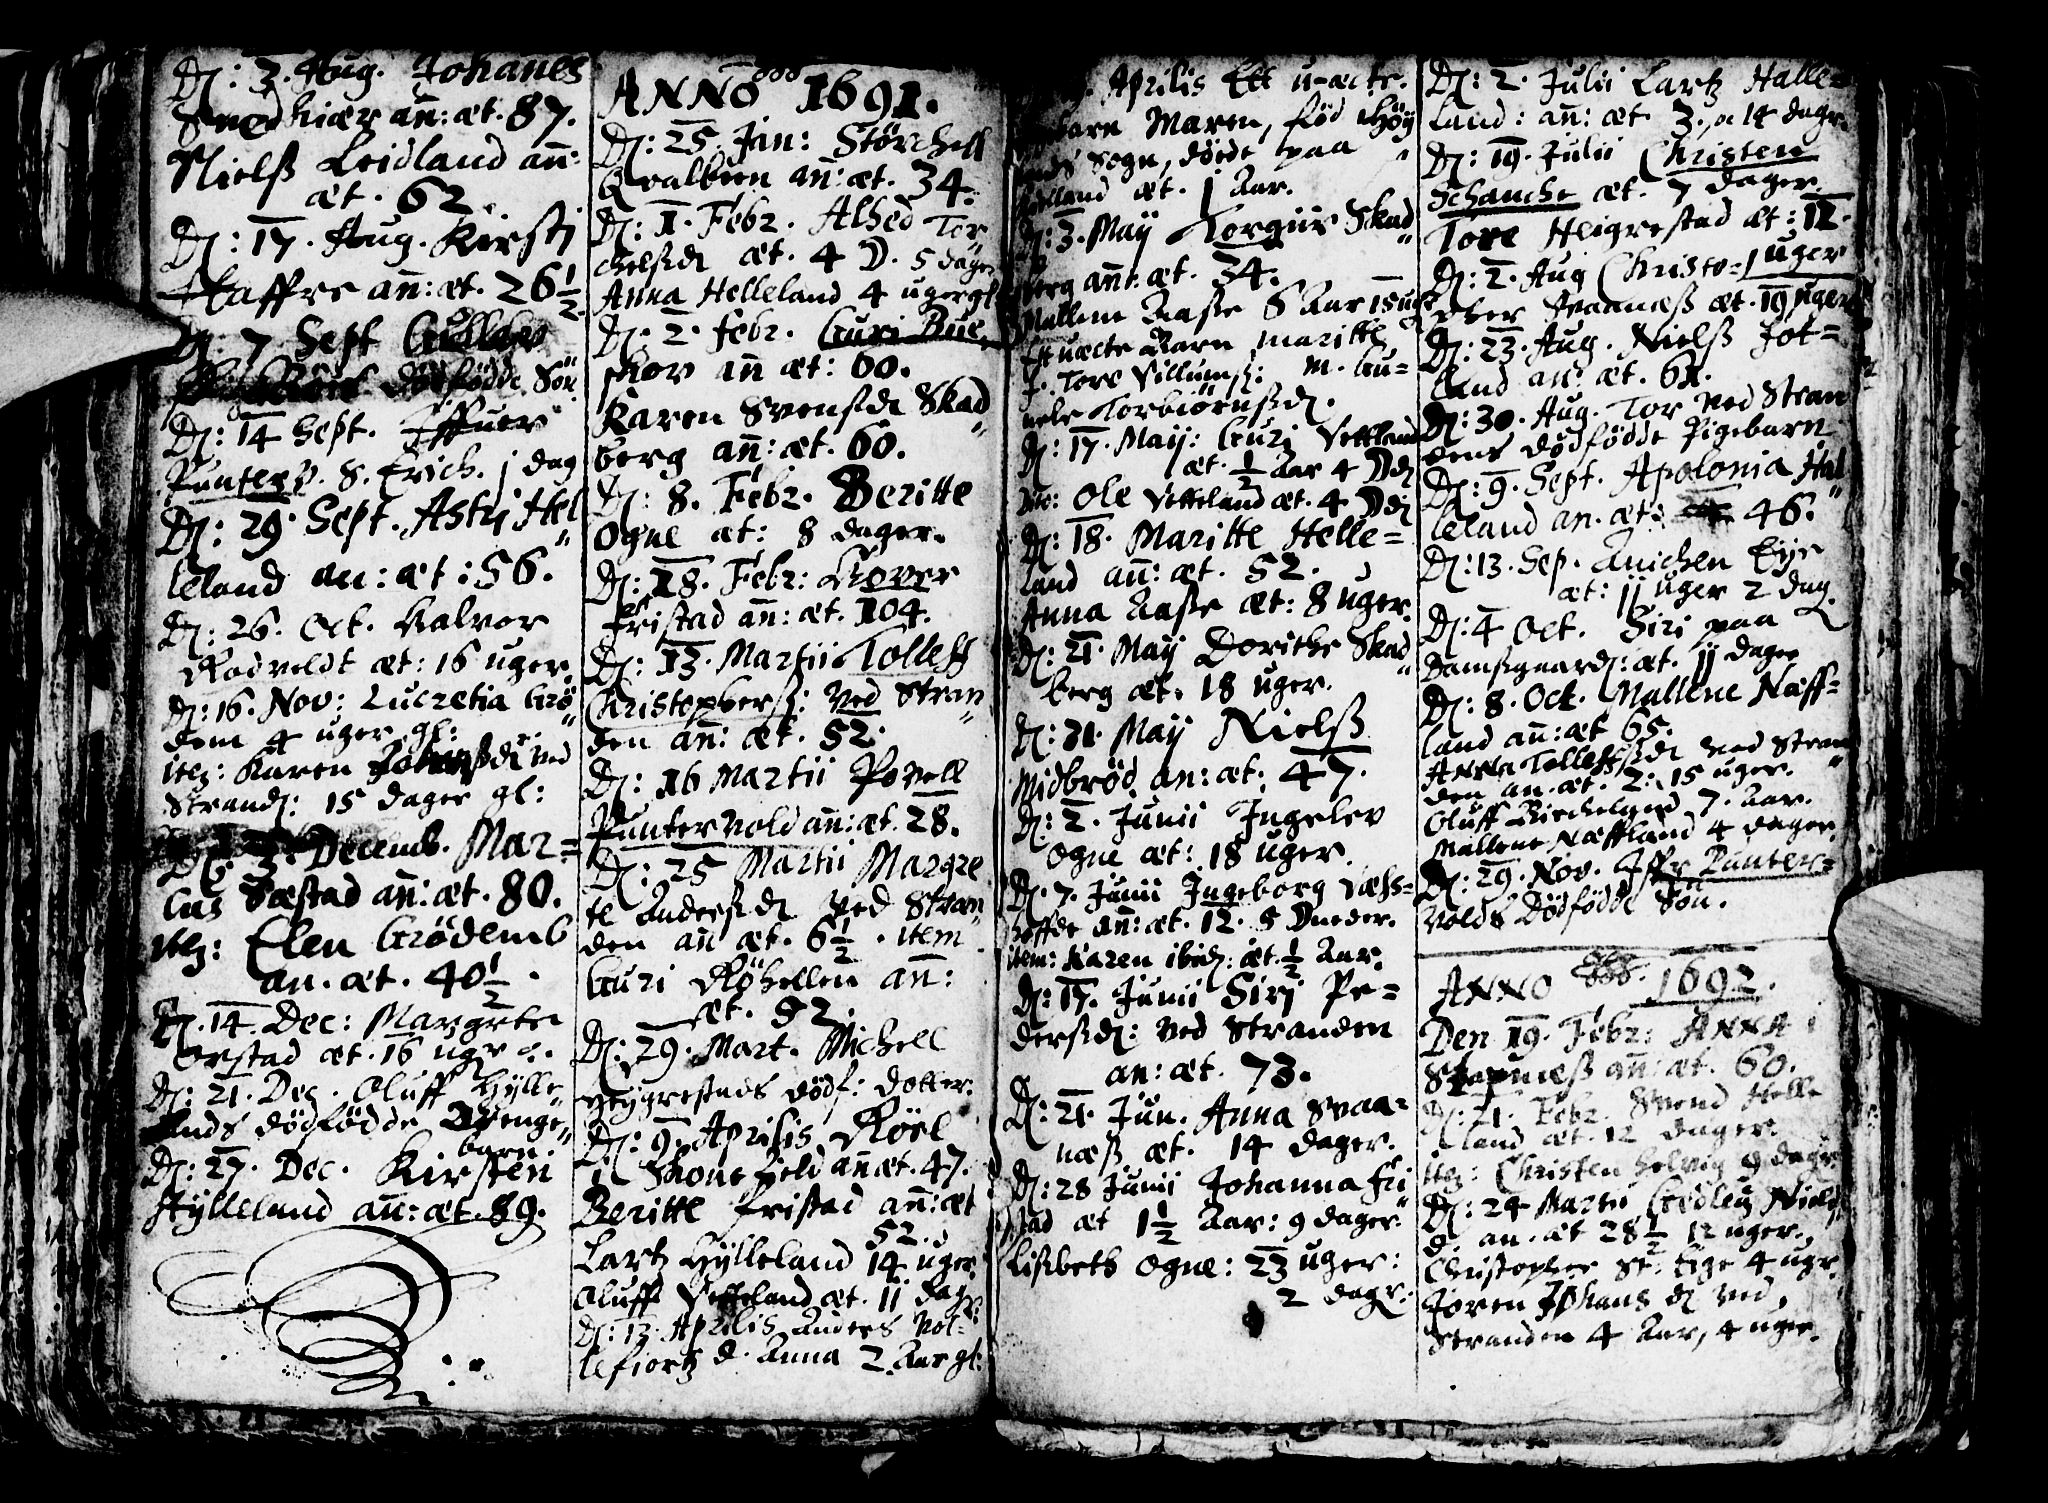 D: 3. Aug. Johanes
Snedkiær an̄: æt. 87.
Nielß Leidland an̄:
æt. 62
D: 17. Aug. Kirstj
Staffrs an̄: æt. 26 1/2
D: 7 Sept
dødfødde Søn
D: 14 Sept. Iffuer
Puntersv. S. Erich. j dag
D: 29. Sept. Astrj Hel„
leland an: æt: 56.
D: 26. Oct. Halvor
Rodveldt æt: 16 uger.
D: 16. Nov: Lucretia Grö„
dem 4 uger gl:
itē: Karen Johanßdr ved
Strand: 15 dager gl:
D: 3. Decemb. Mar=
lus Sæstad an̄: æt. 80.
itē: Elen Grödemb
an. æt. 40 1/2.
D. 14. Dec: Margrte
Orstad æt. 16 ugr
D: 21. Dec. Oluff Hylle„
lands dödfödde Drenge„
barn.
D: 27. Dec. Kirsten
Hylleland an̄: æt. 89.
ANNO 1691.
D: 25. Jan: Störchell
Qvalbein an̄: æt. 34.
D: 1. Febr. Alhed Tor
chelßdr æt. 4 D. 5 dager
Anna Helleland 4 uger gl
D: 2. Febr. Guri Bue„
skov an̄ æt: 60.
Karen Svensdr Skad„
berg an̄: æt. 60.
D: 8. Febr. Beritte
Ogne æt: 8 dager.
D: 18. Febr:
Fristad an̄: æt. 104.
D: 13. Martii Tolleff
Christophersß: ved Stran„
den an̄: æt. 52.
D: 16 Martii Povell
Puntervold an̄: æt. 28.
D: 25 Martii Margre
te Andersdr ved Stran„
den an̄ æt. 6 1/2. item
Guri Röhellen an̄:
æt. 92.
D: 29. Mart. Michell
Heygrestads dödf: dotter.
D: 9. Aprilis Röel
i Skoneveld an̄ æt. 47.
Beritte Fristad an̄: æt
52.
Lartz Hylleland 14 uger
Oluff Vetteland æt. 11 dag
D: 13 Aprilis Anders Vol=
lefiortz d. Anna 2 Aar gl:
Aprilis Ett u-ægte
barn Maren, föd i Höy
lands Sogn, döde paa
æt. j Aar.
D: 3. May Torgiir Skad„
berg an̄: æt. 34.
Mallene Aase 6 Aar 15 ug
Et uægte Barn, maritte
f. Tore Villumsß: M. Gu=
nele Torbiörnsßdr.
D: 17. May: Guri Vettland
æt. 1/2 Aar 4 Ddr
itē: Ole Vetteland æt. 4 Ddr
D: 18. Maritte Helle=
land an̄: æt. 52.
Anna Aase æt: 8 uger.
D: 21. May Dorithe Skad„
berg æt. 18 uger.
D: 31. May Nielß
Midbröd an: æt. 47.
D: 2. Junii Ingelev
Ogne æt: 18 uger.
D. 7. Junii Ingeborg Væss=
hoffde an̄: æt. 12. 5 Dneder.
item: Karen ibid: æt. 1/2 Aar.
D: 17. Junii Sirj Pe=
dersdr: ved Stranden
an: æt. 73.
D: 21. Jun. Anna Svaa=
næß æt. 14 dager.
D: 28 Junii Johanna Fri„
stad æt 1 1/2 Aar: 9 dager.
Lisbeth Ogne: 23 uger:
2 dagr:
D: 2. Julii Lartz Halle=
land: an̄: æt. 3. 14 dagr
D: 19. Julii Christen
Schanche æt. 7 dager.
Tore Heigrestad æt: 12.
uger
D: 2. Aug Christo=
pher Svaanæß æt. 19 uger
D: 23. Aug. Nielß Jot=
land an: æt. 61.
D: 30. Aug. Tor ved Stran
dens dödfödde Pigebarn
D: 9. Sept. Apolonia Hal„
leland an. æt: 46.
D: 13. Sep. Anichen Eye
æt: 11 uger 2 dag.
D: 4 Oct. Siri paa
Damsgaard: æt. 11 dager
D: 8. Oct. Mallene Næff=
land an̄: æt 65.
Anna Tolleffßdr ved Stran„
den an. æt. 2: 15 uger.
Oluff Birchelynd 7. Aar.
Mallene Næffland 4 dager.
D: 29. Nov. Iffr Punters=
volds Dödfödde Sön.
ANNO 1692.
Den 19. Febr: ANNA i
Stapnæß an̄: æt. 60.
D: 21. Febr. Svend Helle
land æt. 12 dager.
itē: Christen Helvig 9 dagr
D: 24 Martii Gudleu Niels
d. an. æt 28 1/2 12 uger.
Christopher St: Eige 4 ugr.
Joren Johans dr ved
Stranden 4 Aar, 4 uger.